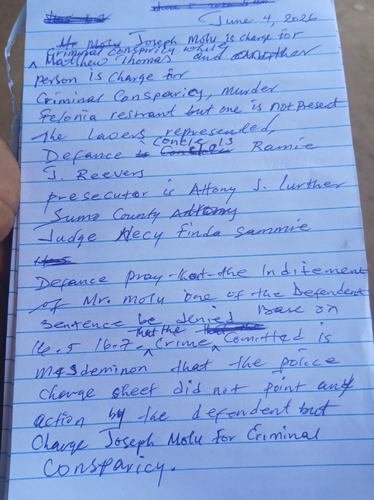 June 4, 2026
Joseph Molu is charge for
Criminal conspiricity while
Matthew Thomas and another
person is charge for
Criminal Consparicy, murder
Felonia restrant but one is not present
the lavers represented,
Defance is Conele Ramie
J. Reevers
presecutor is Attony J. Lurther
Sumo County Attony
Judge Necy Finda Sammie
Defance pray that the Inditement
of Mr. Molu one of the Defendent
Sentence be denied base on
16.5 16.7 that the Crime Comitted is
Masdeminon that the police
charge sheet did not point any
action by the defendent but
Charge Joseph Molu for Criminal
Consparicy.